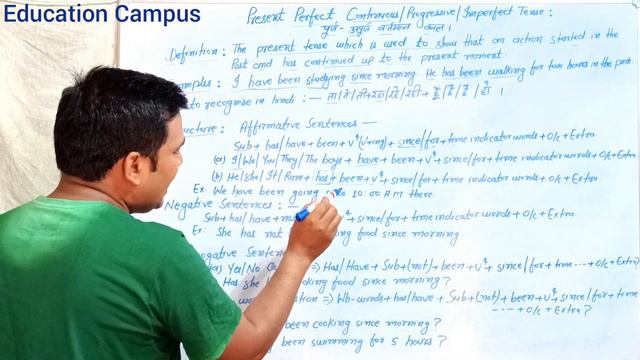 Education Campus
Present Perfect Continuous/Progressive/Imperfect Tense:
पूर्ण-अपूर्ण वर्तमान काल।
Definition: The present tense which is used to show that an action started in the
Past and has continued up to the present moment.
I have been studying since morning. He has been walking for two hours in the park.
to recognise in hindi :—
Affirmative Sentences —
Sub + has/have + been + v⁴(v+ing) + since/for + time indicator words + O/C + Extra.
(a) I/We/You/They/The boys + have + been + v⁴ + since/for + time indicator words + O/C + Extra.
(b) He/She/It/Ram + has + been + v⁴ + since/for + time indicator words + O/C + Extra.
Ex. We have been going 10:00 AM there.
Negative Sentences:
Sub + has/have + + since/for + time indicator words + O/C + Extra.
Ex: She has not food since morning
Yes/No => Has/Have + Sub + (not) + been + v⁴ + since/for + time ---- + O/C + Extra?
Has she cooking food since morning?
=> Wh-words + has/have + Sub + (not) + been + v⁴ + since/for + time
---- + O/C + Extra?
been cooking since morning?
been swimming for 5 hours?